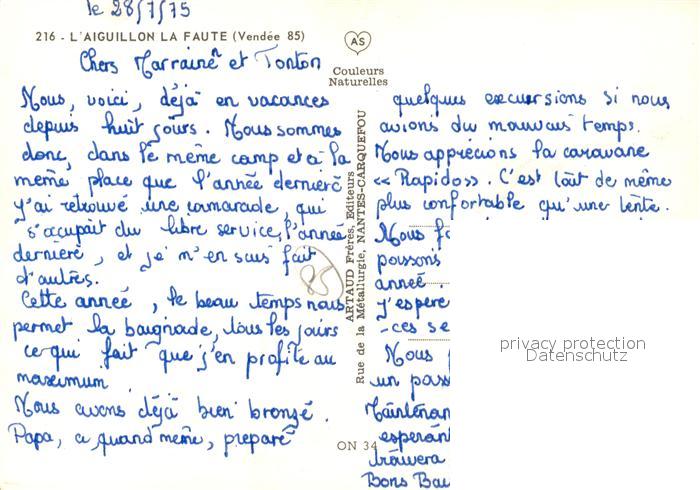 le 28/7/75
216 - L'AIGUILLON LA FAUTE (Vendée 85)
Chers Marraine et Tonton
Nous, voici, déjà en vacances
depuis huit jours. Nous sommes
donc, dans le même camp et à la
même place que l'année dernière
j'ai retrouvé une camarade, qui
s'occupait du libre service, l'année
dernière, et je m'en suis fait
d'autres.
Cette année, le beau temps nous
permet la baignade, tous les jours
ce qui fait que j'en profite au
maximum
Nous avons déjà bien bronzé.
Papa, a quand même, préparé
AS
Couleurs
Naturelles
ARTAUD Frères, Editeurs
Rue de la Métallurgie, NANTES-CARQUEFOU
85
ON 34
quelques excursions si nous
avions du mauvais temps.
Nous apprécions la caravane
«Rapido». C'est tout de même
plus confortable qu'une tente.
Nous
poissons
année
J'espère
-ces se
Nous
un pass
Maintenan
espéran
trouvera
Bons Bai
privacy protection
Datenschutz